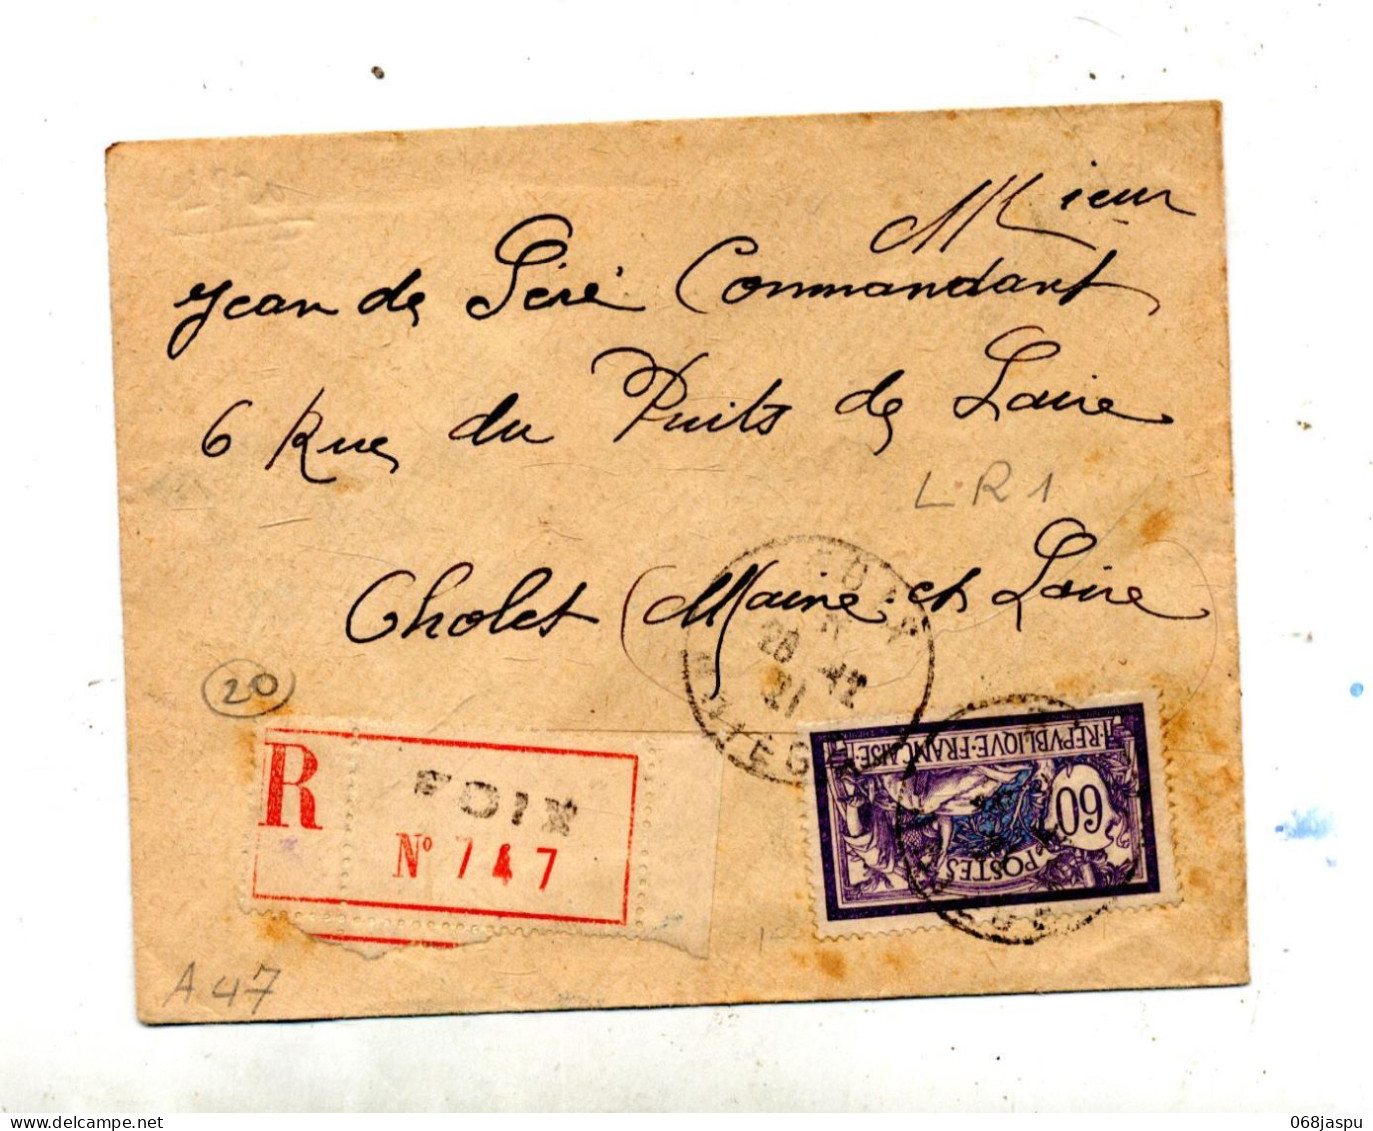 Mieur
Jean de Séré Commandant
6 Rue du Puits de Laire
L.R 1
Cholet (Maine et Loire
20
28 12
21
R
FOIX
N° 747
REPVBLIQVE·FRANÇAISE
60
POSTES
A 47
068jaspu